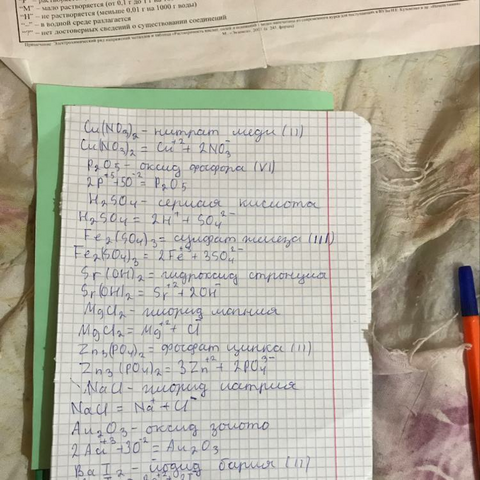 "М" – мало растворяется (от 0,1 г до 1 г на
"Н" – не растворяется (меньше 0,01 г на 1000 г воды)
"–" – в водной среде разлагается
– нет достоверных сведений о существовании соединений
Cu(NO3)2 – нитрат меди (II)
Cu(NO3)2 = Cu+2 + 2NO3-
P2O5 – оксид фосфора (VI)
2P+5 + 5O-2 = P2O5
H2SO4 – серная кислота
H2SO4 = 2H+ + SO4 2-
Fe2(SO4)3 = сулфат железа (III)
Fe2(SO4)3 = 2Fe+3 + 3SO4 2-
Sr(OH)2 = гидроксид стронция
Sr(OH)2 = Sr+2 + 2OH-
MgCl2 – хлорид магния
MgCl2 = Mg+2 + Cl-
Zn3(PO4)2 = фосфат цинка (II)
Zn3(PO4)2 = 3Zn+2 + 2PO4 3-
NaCl – хлорид натрия
NaCl = Na+ + Cl-
Au2O3 – оксид золото
2Au+3 + 3O-2 = Au2O3
BaI2 – йодид бария (II)